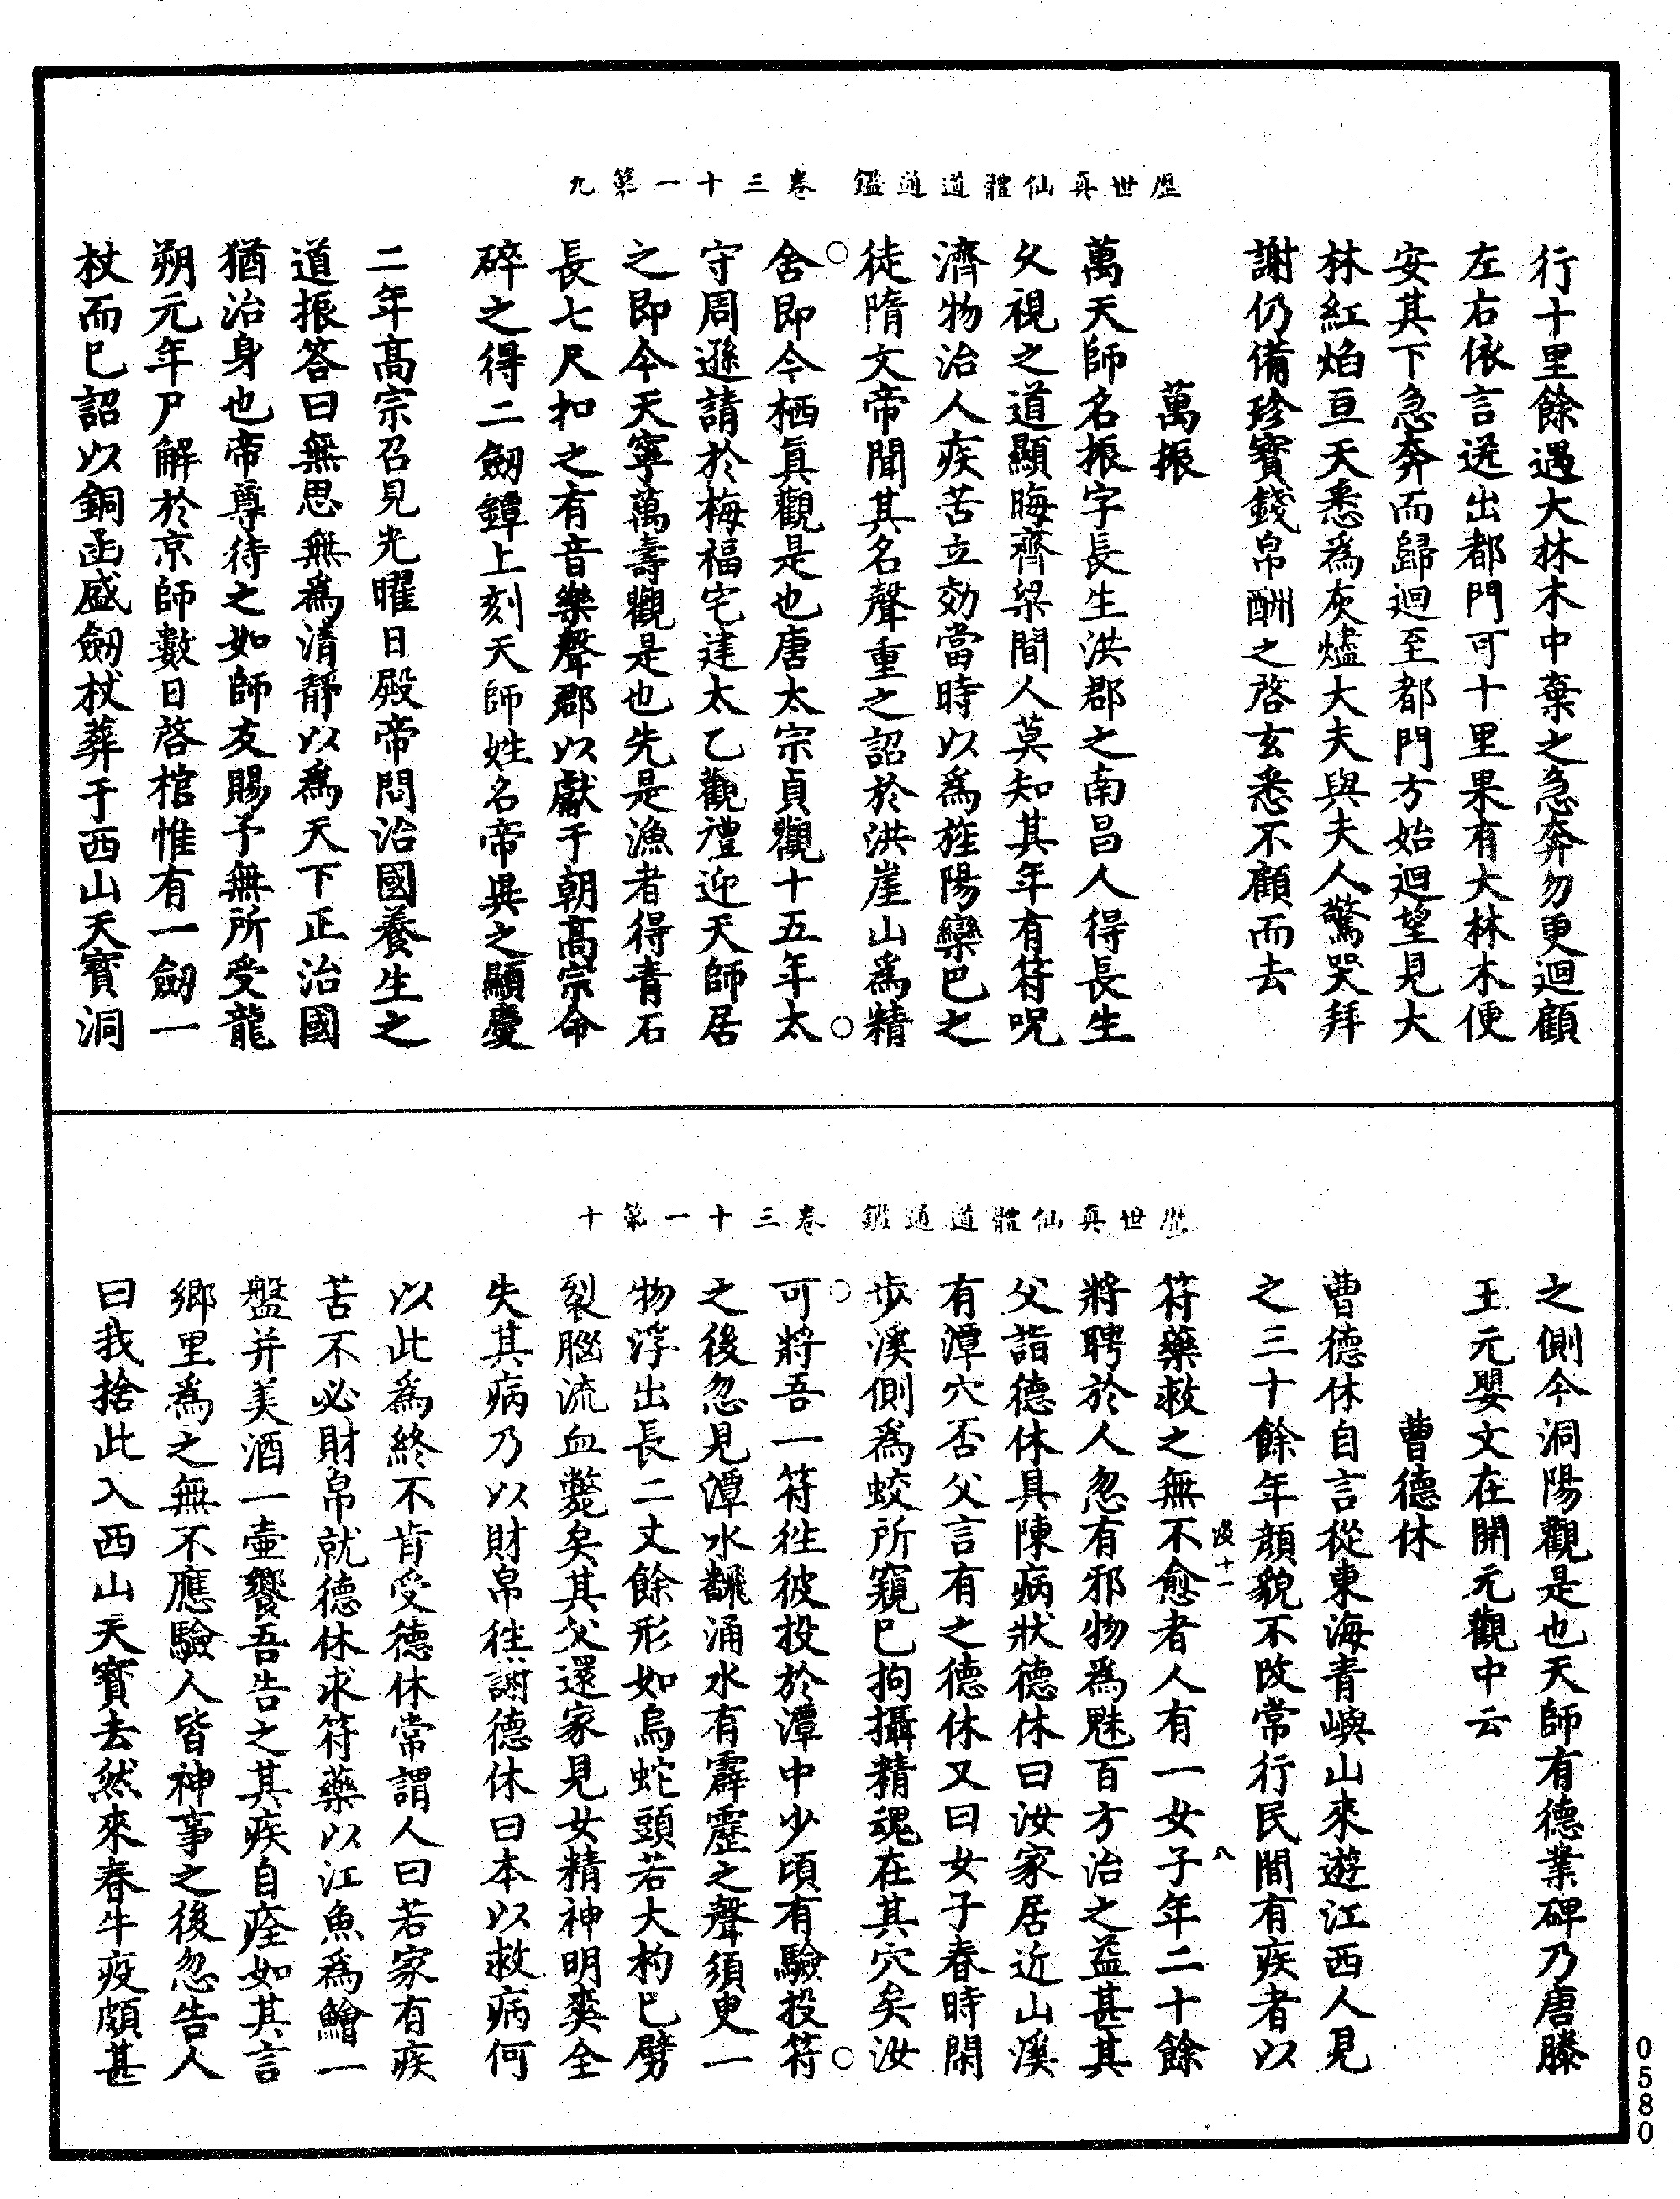 歷世真仙體道通鑑　卷三十一第九
行十里餘遇大林木中棄之急奔勿更迴顧
左右依言送出都門可十里果有大林木便
安其下急奔而歸迴至都門方始迴望見大
林紅焰亘天悉爲灰燼大夫與夫人驚哭拜
謝仍備珍寶錢帛酬之啓玄悉不顧而去
萬振
萬天師名振字長生洪郡之南昌人得長生
久視之道顯晦齊梁間人莫知其年有符呪
濟物治人疾苦立効當時以爲旌陽欒巴之
徒隋文帝聞其名聲重之詔於洪崖山爲精
舍即今栖眞觀是也唐太宗貞觀十五年太
守周遜請於梅福宅建太乙觀禮迎天師居
之即今天寧萬壽觀是也先是漁者得青石
長七尺扣之有音樂聲郡以獻于朝高宗命
碎之得二劒鐔上刻天師姓名帝異之顯慶
二年高宗召見光曜日殿帝問治國養生之
道振答曰無思無爲清靜以爲天下正治國
猶治身也帝尊待之如師友賜予無所受龍
朔元年尸解於京師數日啓棺惟有一劒一
杖而已詔以銅函盛劒杖葬于西山天寶洞
歷世真仙體道通鑑　卷三十一第十
之側今洞陽觀是也天師有德業碑乃唐滕
王元嬰文在開元觀中云
曹德休
曹德休自言從東海青嶼山來遊江西人見
之三十餘年顏貌不改常行民間有疾者以
符藥救之無不愈者人有一女子年二十餘
將聘於人忽有邪物爲魅百方治之益甚其
父詣德休具陳病狀德休曰汝家居近山溪
有潭穴否父言有之德休又曰女子春時閑
步溪側爲蛟所窺已拘攝精魂在其穴矣汝
可將吾一符往彼投於潭中少頃有驗投符
之後忽見潭水飜涌水有霹靂之聲須臾一
物浮出長二丈餘形如烏蛇頭若大杓已劈
裂腦流血斃矣其父還家見女精神明爽全
失其病乃以財帛往謝德休曰本以救病何
以此爲終不肯受德休常謂人曰若家有疾
苦不必財帛就德休求符藥以江魚爲鱠一
盤并美酒一壺饗吾告之其疾自痊如其言
鄉里爲之無不應驗人皆神事之後忽告人
曰我捨此入西山天寶去然來春牛疫頗甚
十一
八
0580